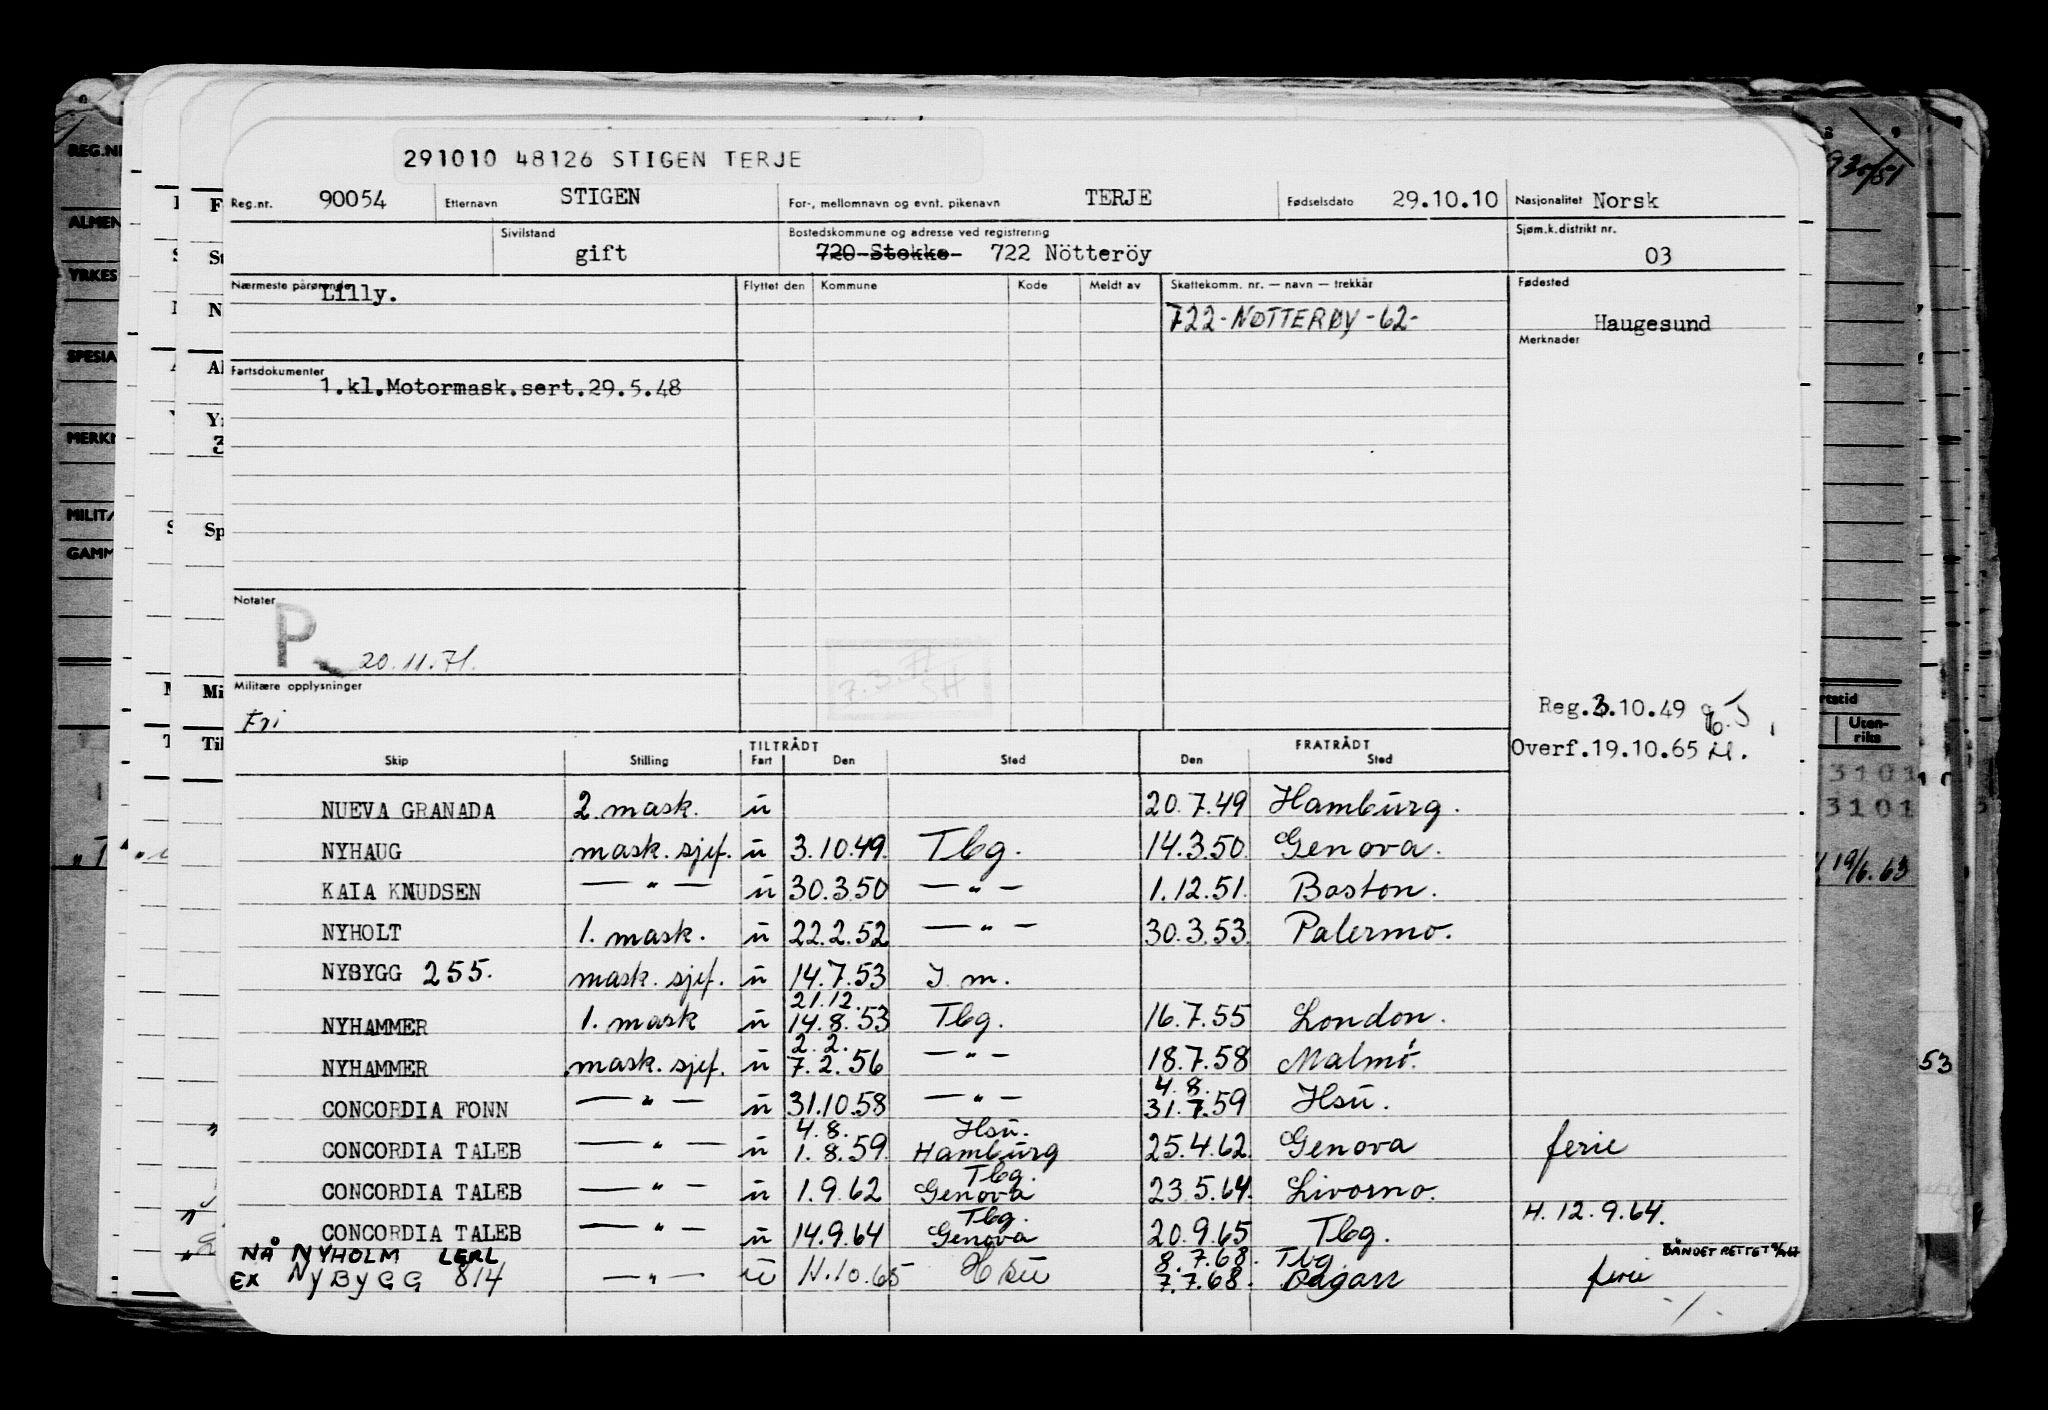 291010 48126 STIGEN TERJE
Reg.nr. 90054 Etternavn STIGEN For-, mellomnavn og evnt. pikenavn TERJE Fødselsdato 29.10.10 Nasjonalitet Norsk
Sivilstand gift Bostedskommune og adresse ved registrering 720 Stokke 722 Nötteröy Sjøm.k.distrikt nr. 03
Nærmeste pårørende Lilly. Flyttet den Kommune Kode Meldt av Skattekomm. nr. — navn — trekkår Fødested
722-NØTTERØY-62- Haugesund
Merknader
Fartsdokumenter
1.kl.Motormask.sert.29.5.48
Notater
P 20.11.71.
7.3.77 SH
Militære opplysninger
Fri
Reg.3.10.49
Overf.19.10.65
TILTRÅDT FRATRÅDT
Skip Stilling Fart Den Sted Den Sted
NUEVA GRANADA 2. mask. u 20.7.49 Hamburg.
NYHAUG mask. sjef. u 3.10.49. Tbg. 14.3.50. Genova.
KAIA KNUDSEN — " — u 30.3.50 — " — 1.12.51. Boston.
NYHOLT 1. mask. u 22.2.52 — " — 30.3.53. Palermo.
NYBYGG 255. mask. sjef. u 14.7.53 I m.
21.12.
NYHAMMER 1. mask u 14.8.53 Tbg. 16.7.55 London.
2.2.
NYHAMMER mask. sjef. u 7.2.56 — " — 18.7.58 Malmö.
4.8.
CONCORDIA FONN — " — u 31.10.58 — " — 31.7.59 Hsu.
4.8. Hsu.
CONCORDIA TALEB — " — u 1.8.59. Hamburg 25.4.62. Genova ferie
Tbg.
CONCORDIA TALEB — " — u 1.9.62 Genova 23.5.64. Livorno.
Tbg. H. 12.9.64.
CONCORDIA TALEB — " — u 14.9.64 Genova 20.9.65 Tbg.
NÅ NYHOLM LERL 8.7.68. Tbg. BÅNDET RETTET
EX NYBYGG 814 — " — u 11.10.65 Hsu 7.7.68. ferie
REG.N
ALMEN
YRKES
SPESIA
MERKN
MILITÆ
GAMM
Uten-
riks
3101
3101
19/6.63
53